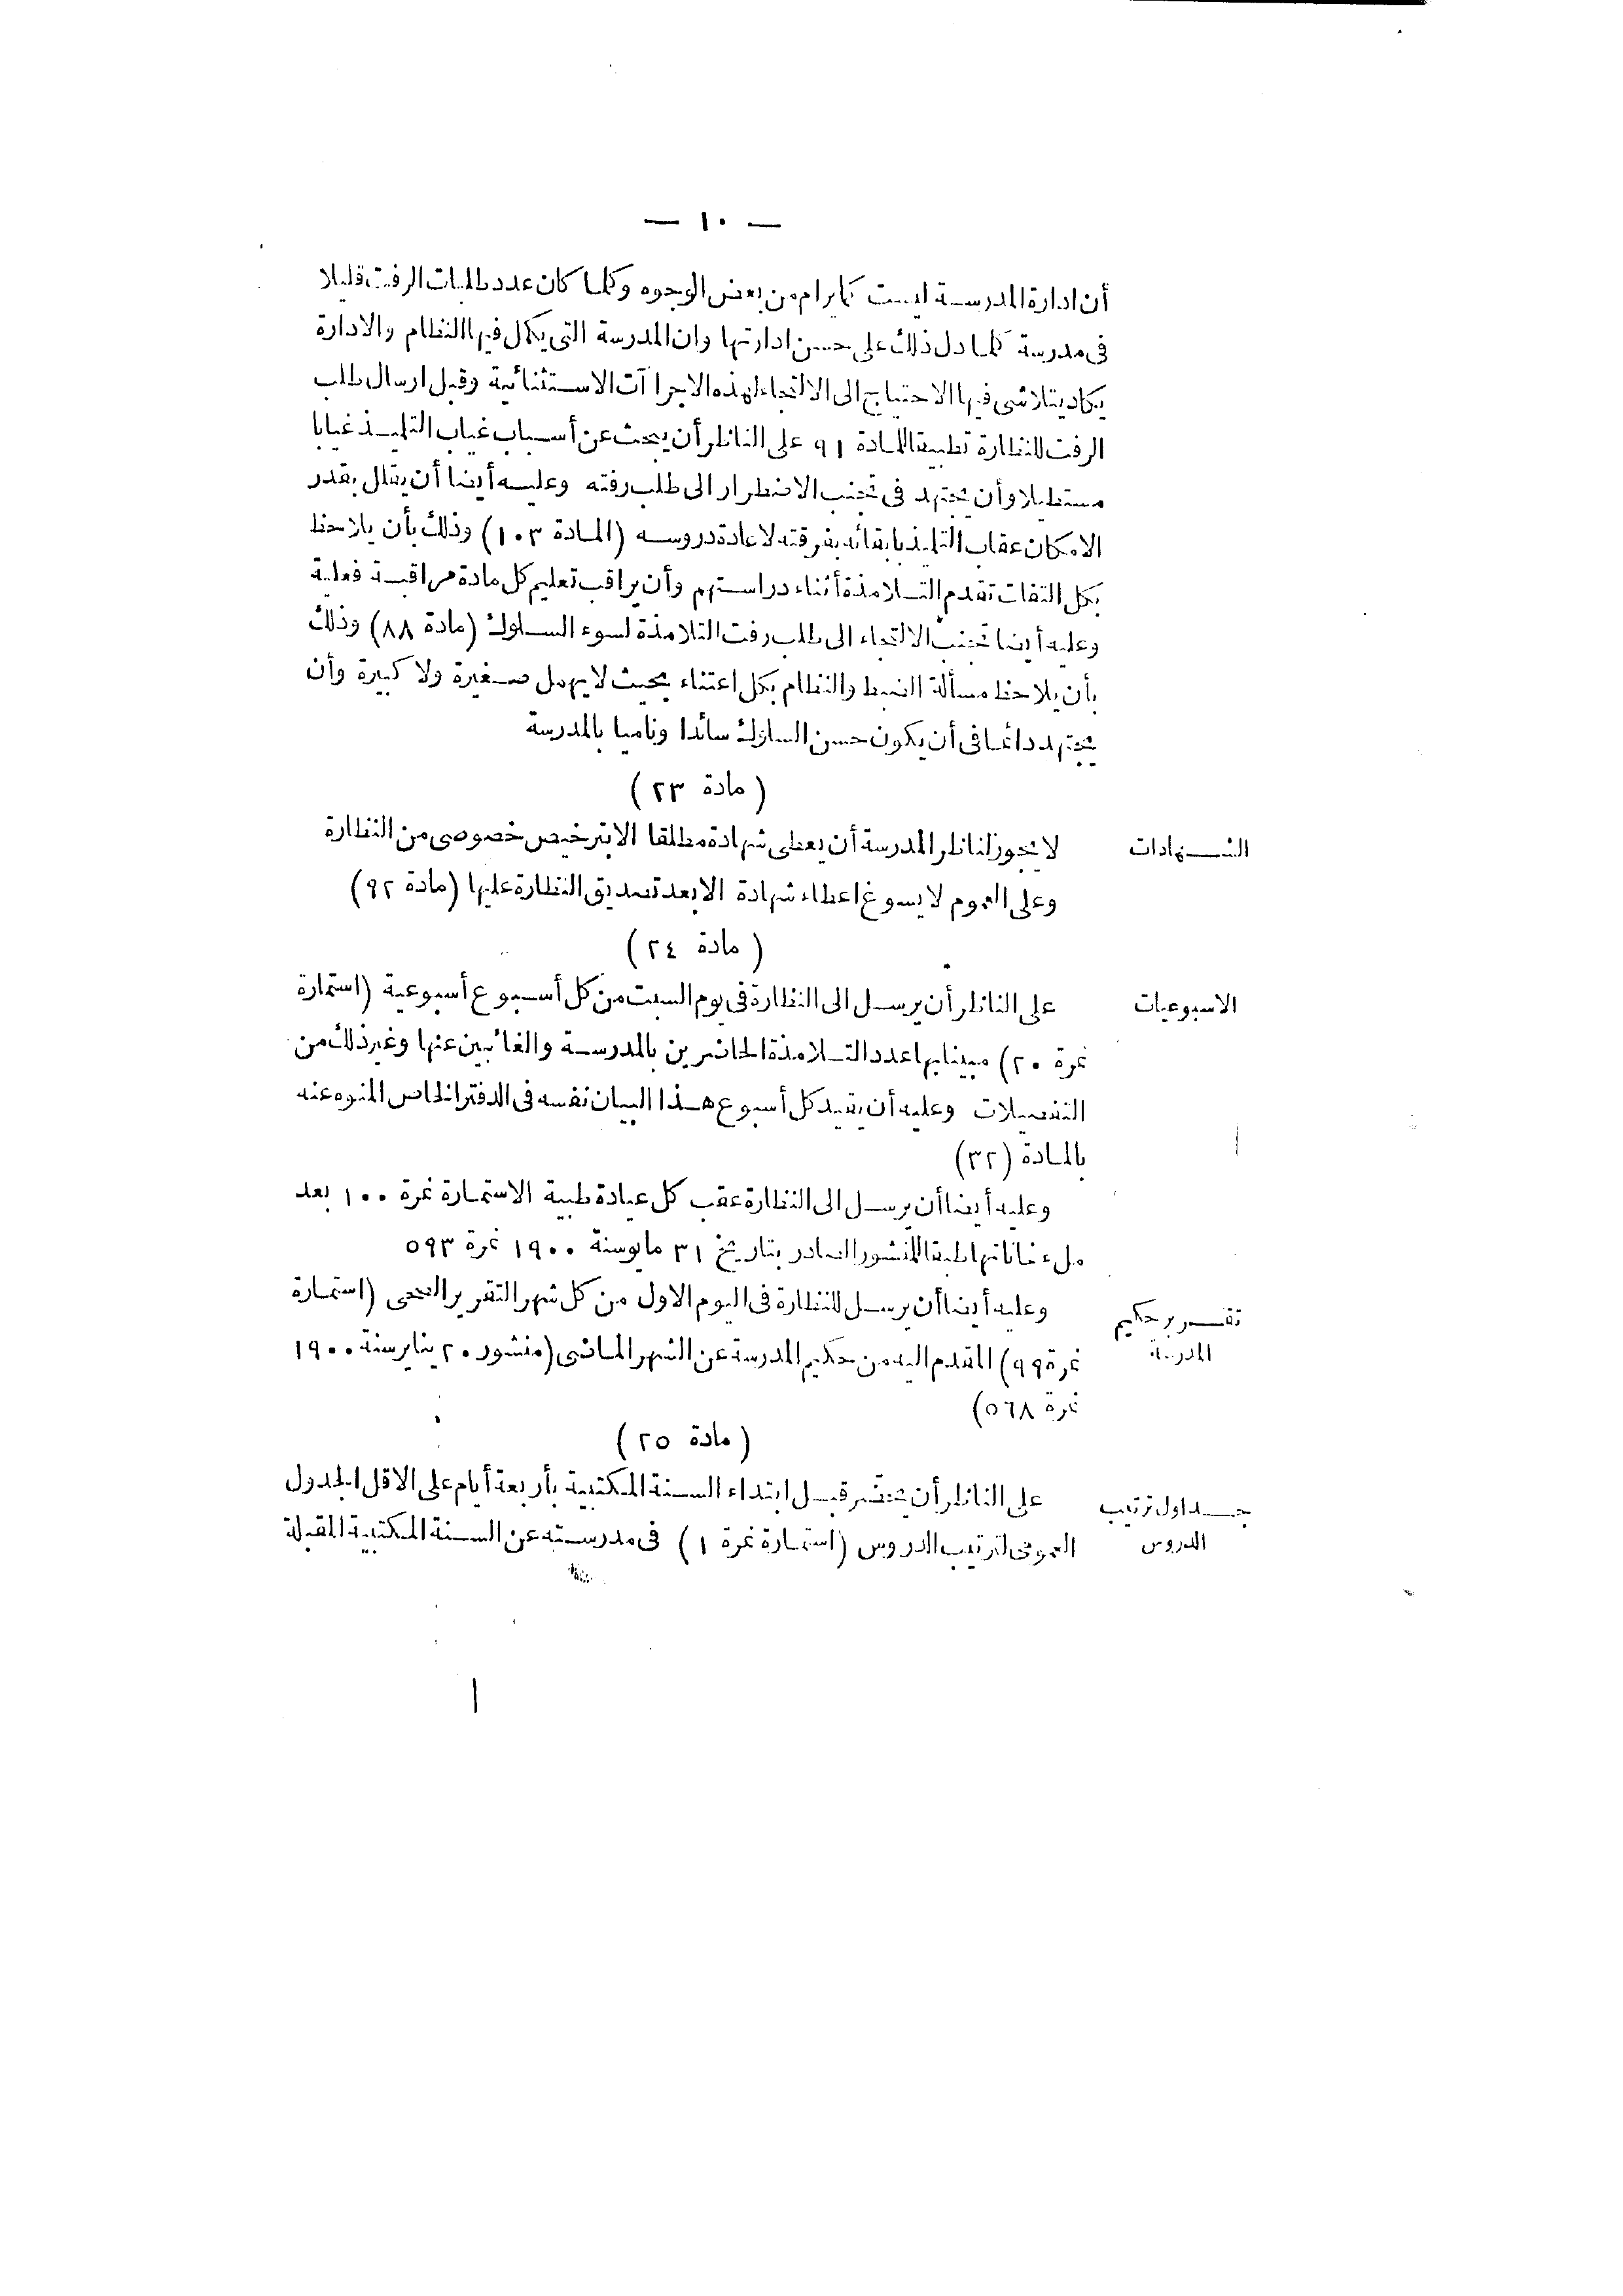 — ١٠ —
أن ادارة المدرسة ليست كما يرام من بعض الوجوه وكلما كان عدد طلبات الرفت قليلا
فى مدرسة كلما دل ذلك على حسن ادارتها وان المدرسة التى يكمل فيها النظام والادارة
يكاد يتلاشى فيها الاحتياج الى الالتجاء لهذه الاجراآت الاستثنائية وقبل ارسال طلب
الرفت للنظارة تطبيقا للمادة ٩١ على الناظر أن يبحث عن أسباب غياب التلميذ غيابا
مستطيلا وأن يجتهد فى تجنب الاضطرار الى طلب رفته وعليه أيضا أن يقلل بقدر
الامكان عقاب التلميذ بابقائه بفرقته لاعادة دروسه (المادة ١٠٣) وذلك بأن يلاحظ
بكل التفات تقدم التلامذة أثناء دراستهم وأن يراقب تعليم كل مادة مراقبة فعلية
وعليه أيضا تجنب الالتجاء الى طلب رفت التلامذة لسوء السلوك (مادة ٨٨) وذلك
بأن يلاحظ مسألة الضبط والنظام بكل اعتناء بحيث لا يهمل صغيرة ولا كبيرة وأن
يجتهد دائما فى أن يكون حسن السلوك سائدا وناميا بالمدرسة
(مادة ٢٣)
الشهادات
لا يجوز لناظر المدرسة أن يعطى شهادة مطلقا الا بترخيص خصوصى من النظارة
وعلى العموم لا يسوغ اعطاء شهادة الا بعد تصديق النظارة عليها (مادة ٩٢)
(مادة ٢٤)
الاسبوعيات
على الناظر أن يرسل الى النظارة فى يوم السبت من كل أسبوع أسبوعية (استمارة
نمرة ٢٠) مبينا بها عدد التلامذة الحاضرين بالمدرسة والغائبين عنها وغير ذلك من
التفصيلات وعليه أن يقيد كل أسبوع هذا البيان نفسه فى الدفتر الخاص المنوه عنه
بالمادة (٣٢)
وعليه أيضا أن يرسل الى النظارة عقب كل عيادة طبية الاستمارة نمرة ١٠٠ بعد
ملء خاناتها طبقا للمنشور الصادر بتاريخ ٣١ مايو سنة ١٩٠٠ نمرة ٥٩٣
تقرير حكيم
المدرسة
وعليه أيضا أن يرسل للنظارة فى اليوم الاول من كل شهر التقرير الصحى (استمارة
نمرة ٩٩) المقدم اليه من حكيم المدرسة عن الشهر الماضى (منشور ٢٠ يناير سنة ١٩٠٠
نمرة ٥٦٨)
(مادة ٢٥)
جداول ترتيب
الدروس
على الناظر أن يحضر قبل ابتداء السنة المكتبية بأربعة أيام على الاقل الجدول
العمومى لترتيب الدروس (استمارة نمرة ١) فى مدرسته عن السنة المكتبية المقبلة